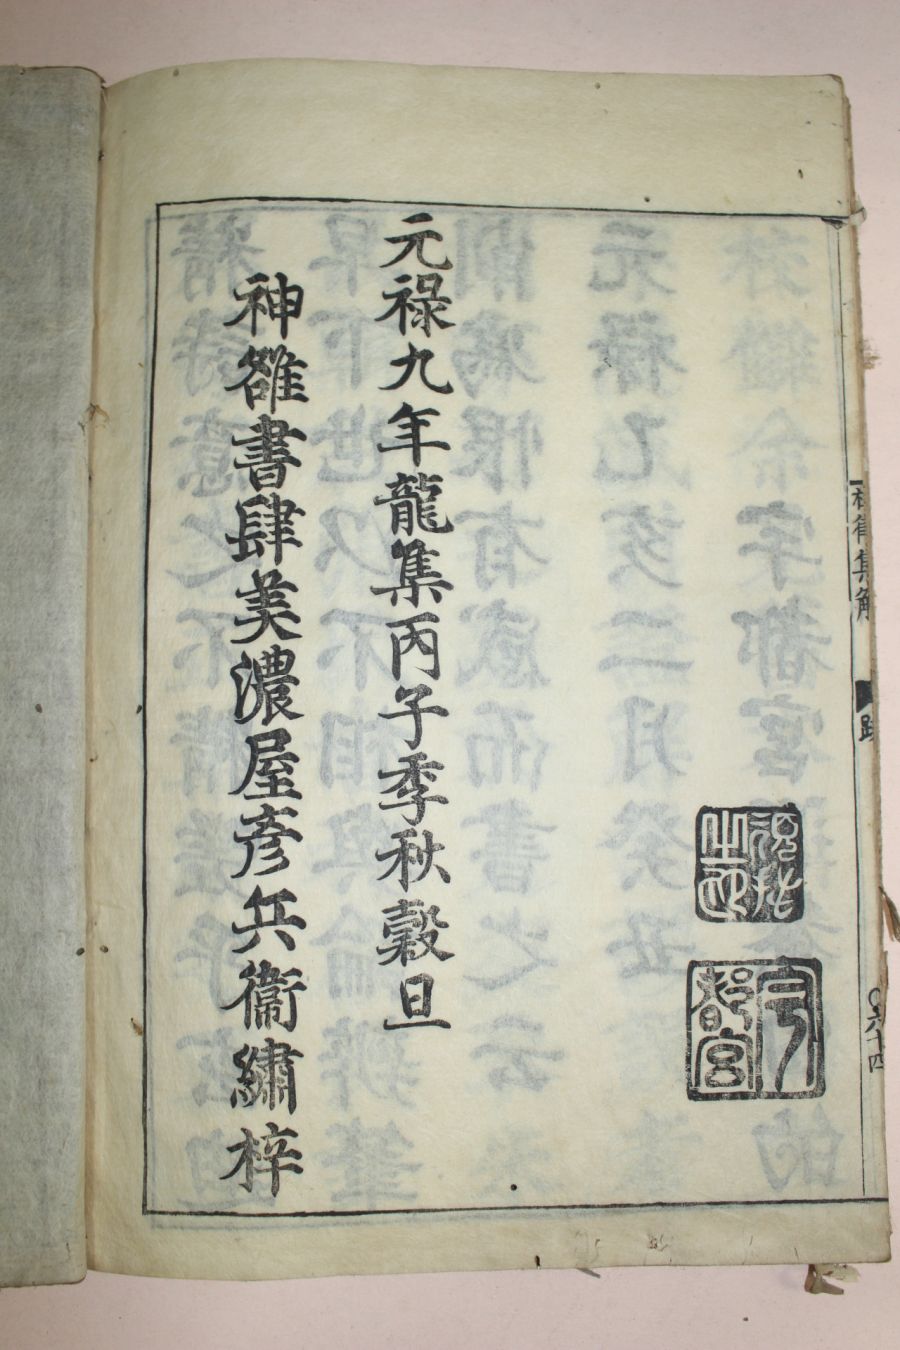 元祿九年龍集丙子季秋穀旦
神雒書肆美濃屋彥兵衞繡梓
之印
都宮
律集解
跋
〇六十四